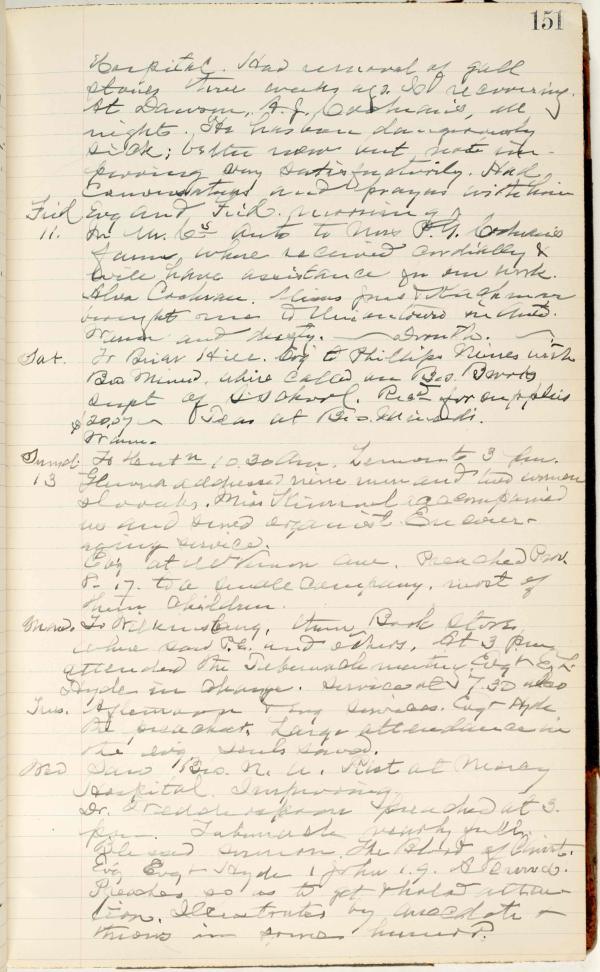 151
Hospital. Had removal of gall
stones three weeks ago. Is recovering.
At Dawson, A.J. Cochran's, all
night. He has been dangerously
sick; better now but not im-
proving very satisfactorily. Had
Conversations and prayers with him
Frid. Evg and Frid. morning.
11. In Mr. C's auto to Mrs P. G. Cochran's
farm, where received cordially &
will have assistance in our work.
Alva Cochran, Misses and
brought me to Uniontown in auto.
Warm and dusty. Drouth.
Sat. To Briar Hill. Evg to Phillips Mines with
Bro Minerd, where called on Bro. Brooks
Supt of S School. Recd for supplies
$20.07 Tea at Bro. Minerd's.
Warm.
Sund. To 10.30 am. Lemont 3 pm.
13 addressed nine men and two women
Slovaks. Miss Kimmel accompanied
us and served organist. Encour-
aging service.
Evg at Mt Vernon Ave. Preached Prov.
8.17. to a small company, most of
them children.
Mond. To Wilkinsburg, then Book Store,
where saw P.E. and others. At 3 p.m.
attended the Tabernacle meeting, Evgt
Hyde in charge. Service at 7.30 also
Tues. Afternoon & evg services. Evgt Hyde
the preacher. Large attendance in
the evg souls saved.
Wed Saw Bro. N. A. at Mercy
Hospital. Improving.
Dr. preached at 3.
p.m. Tabernacle nearly full.
Blessed sermon. The Blood of Christ.
Evg Evgt Hyde 1 John 1.9. A crowd.
Preaches so as to get & hold atten-
tion. Illustrates by anecdote &
throws in some humor.